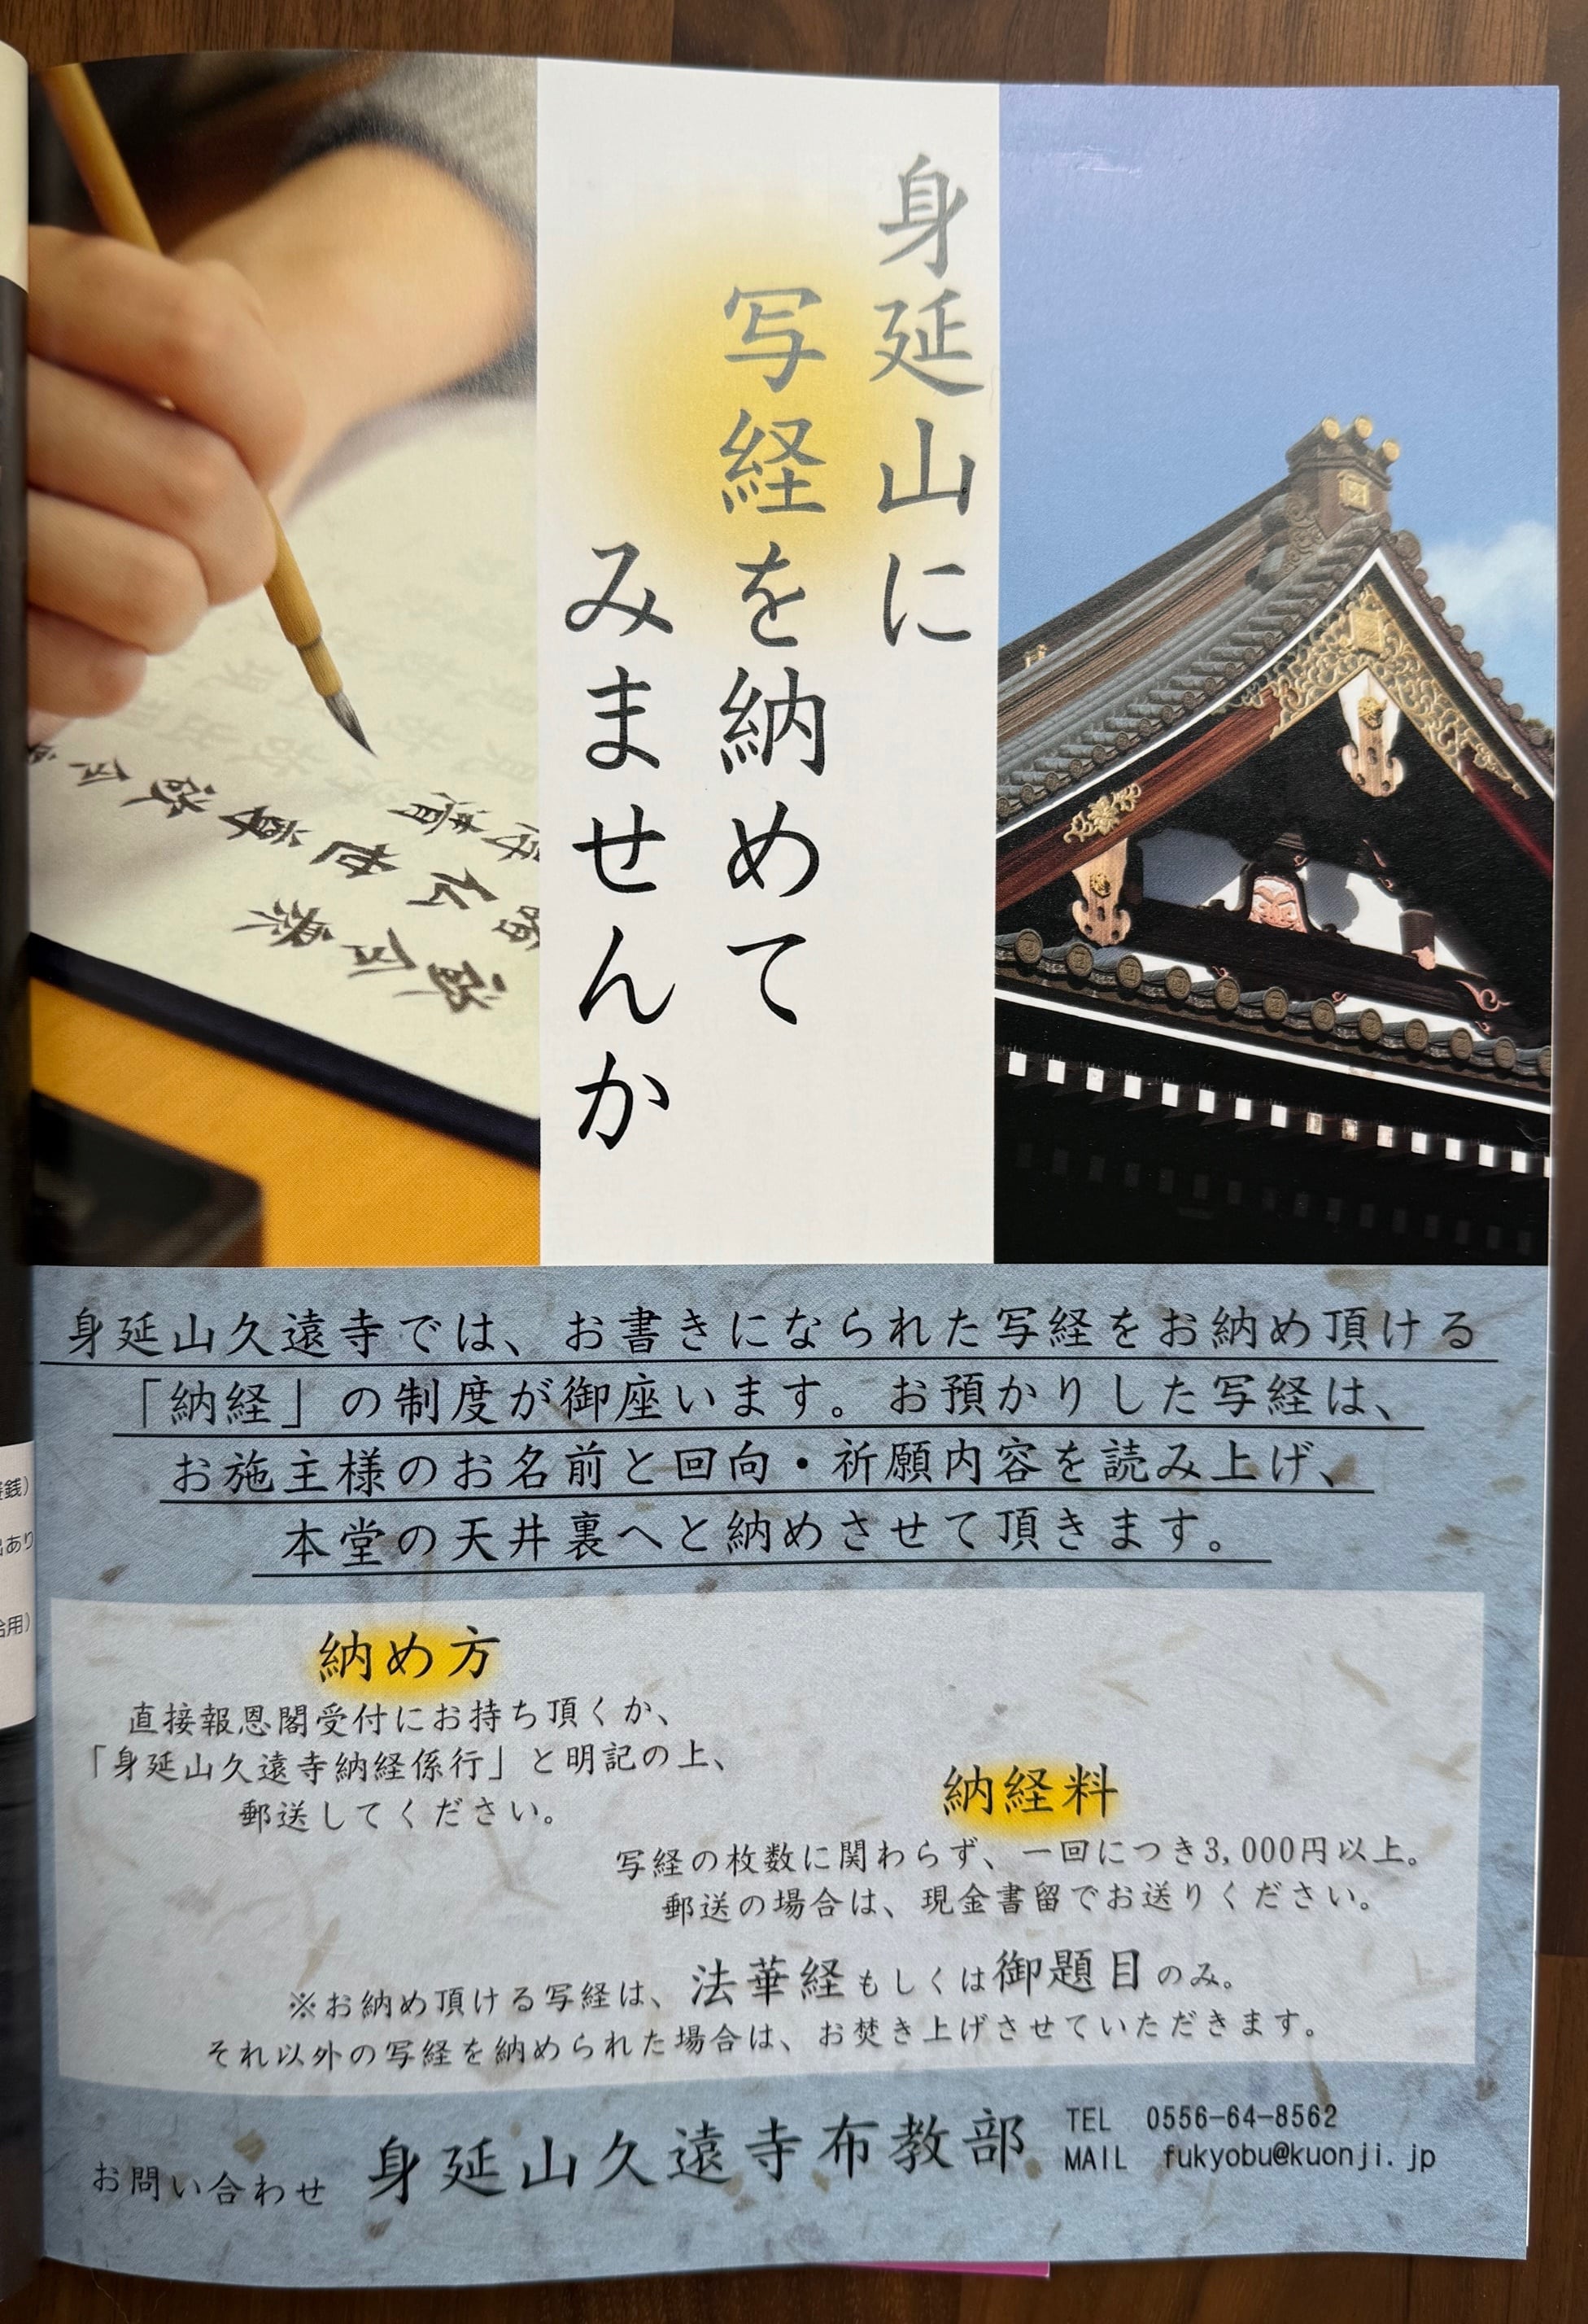 身延山に
写経を納めて
みませんか
身延山久遠寺では、お書きになられた写経をお納め頂ける
「納経」の制度が御座います。お預かりした写経は、
お施主様のお名前と回向・祈願内容を読み上げ、
本堂の天井裏へと納めさせて頂きます。
納め方
直接報恩閣受付にお持ち頂くか、
「身延山久遠寺納経係行」と明記の上、
郵送してください。
納経料
写経の枚数に関わらず、一回につき3,000円以上。
郵送の場合は、現金書留でお送りください。
※お納め頂ける写経は、法華経もしくは御題目のみ。
それ以外の写経を納められた場合は、お焚き上げさせていただきます。
お問い合わせ 身延山久遠寺布教部
TEL 0556-64-8562
MAIL fukyobu@kuonji.jp